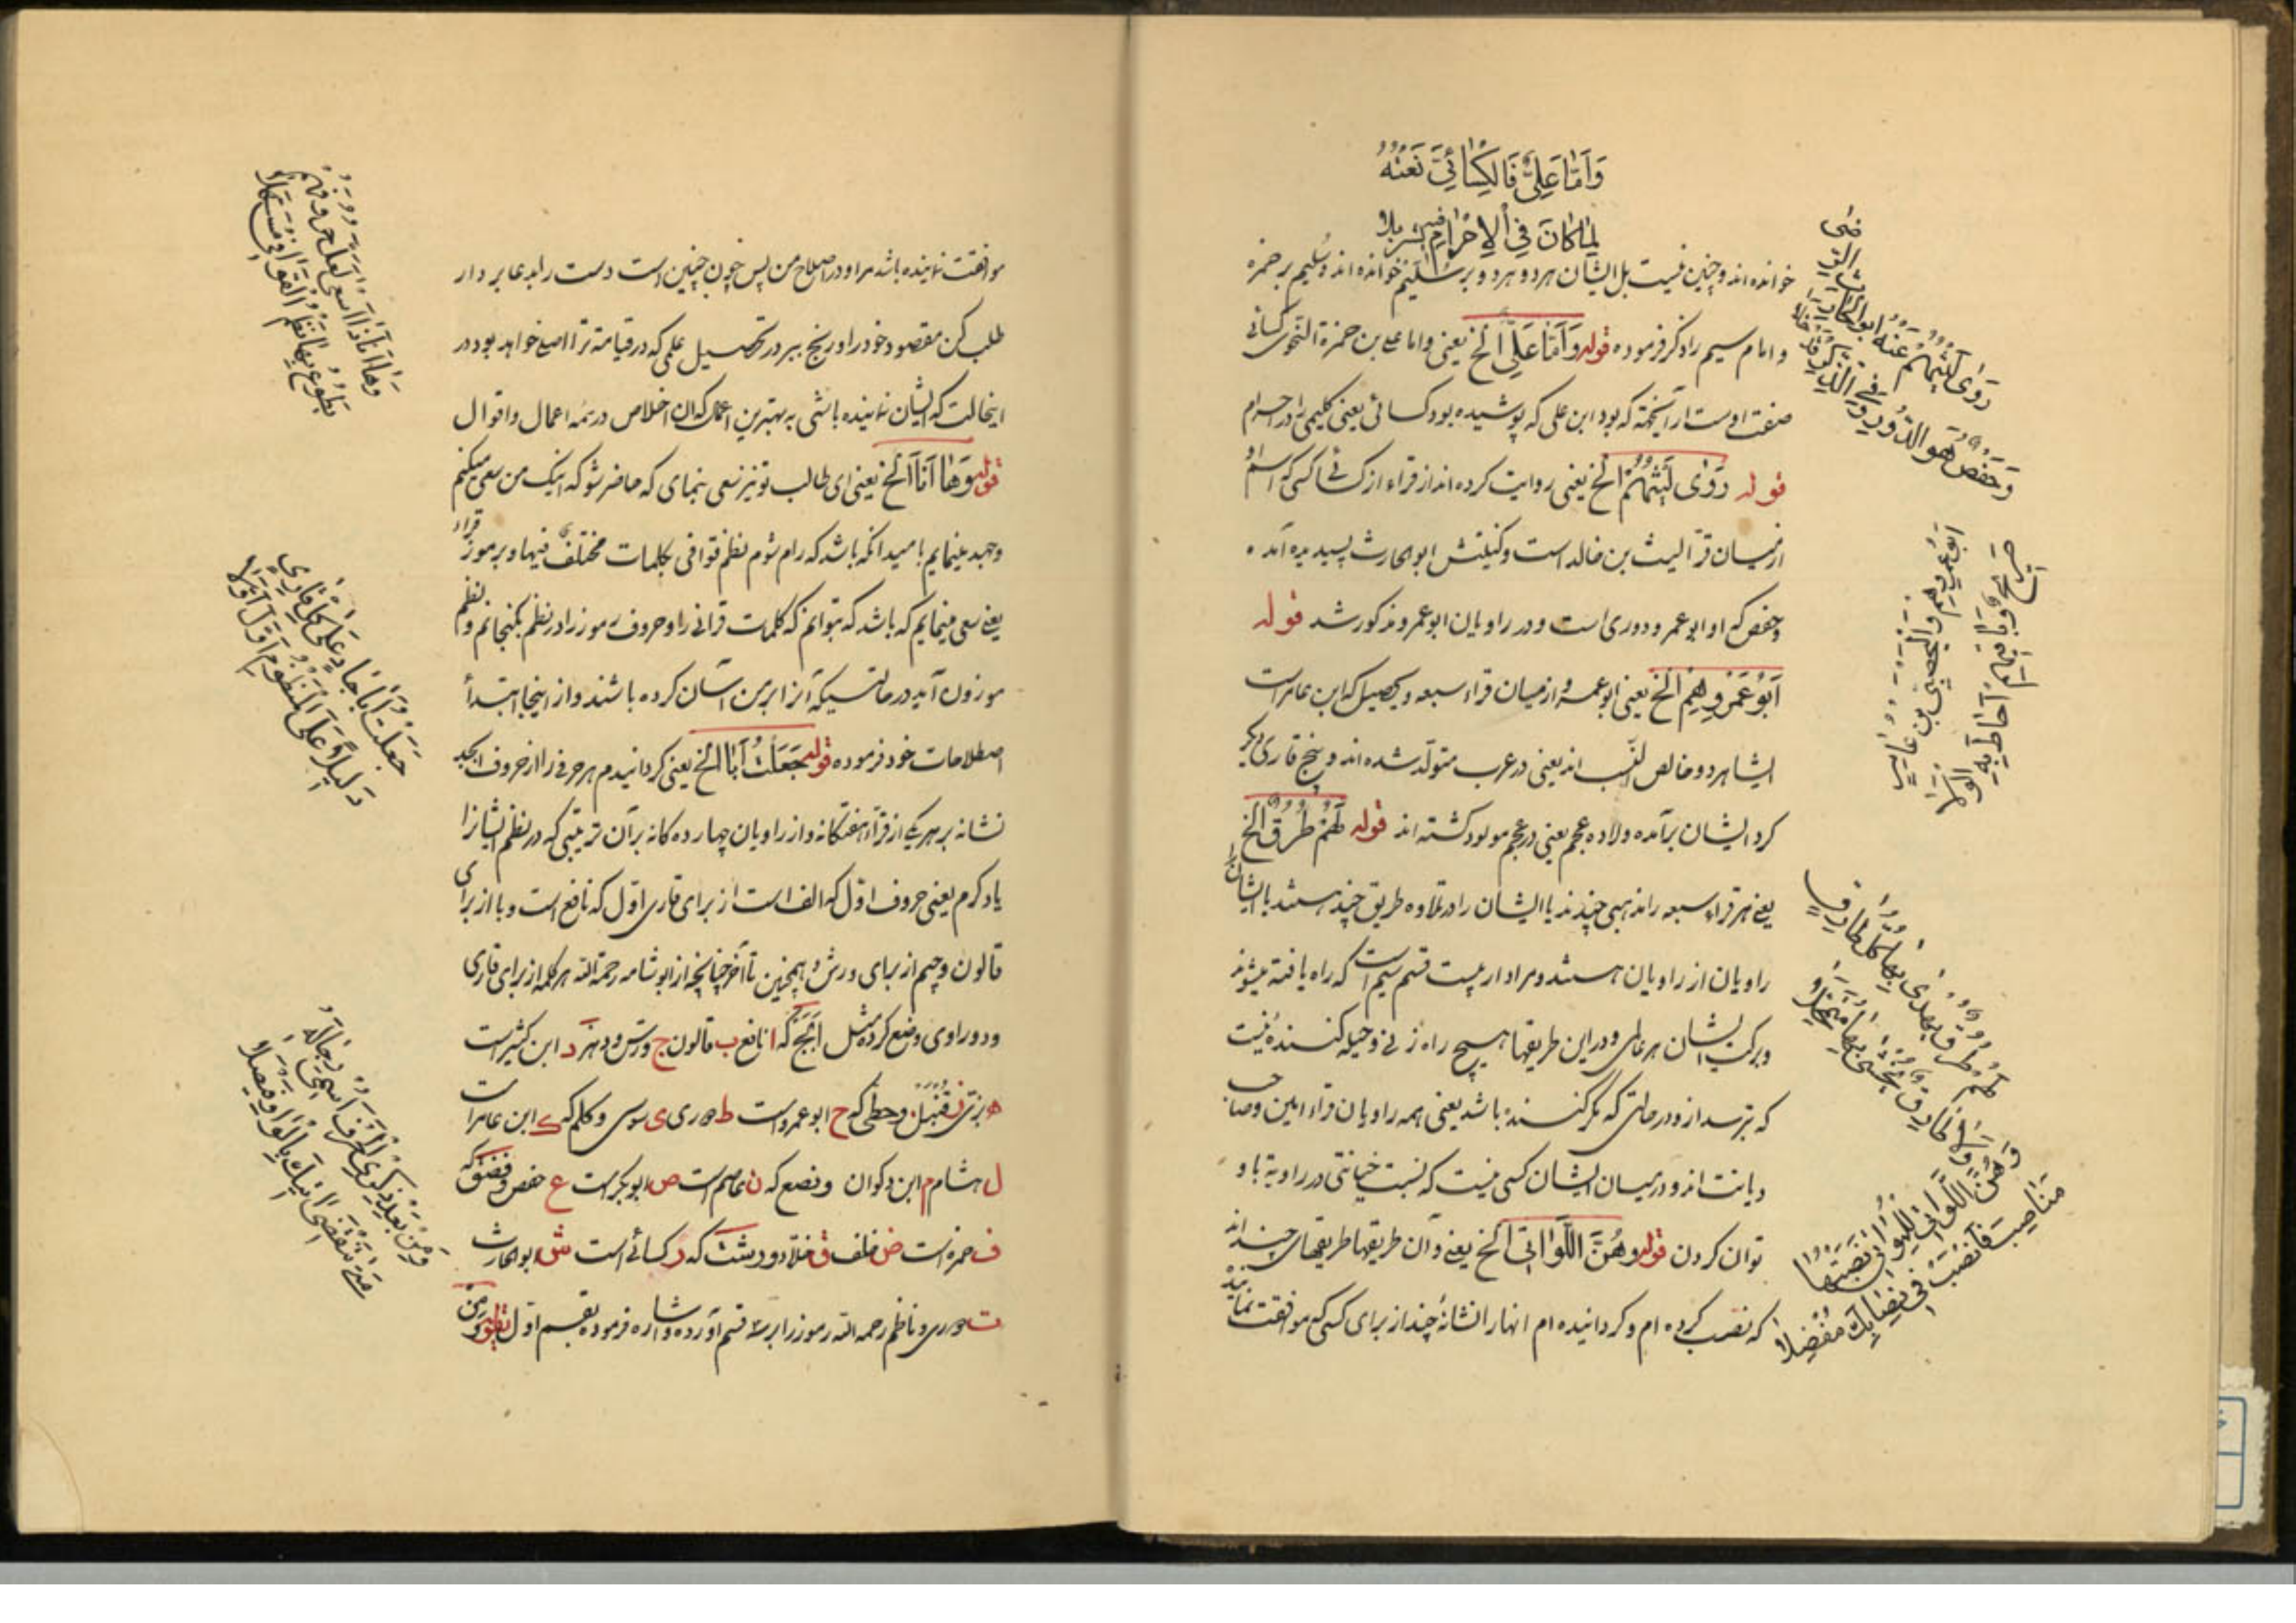 وَاَمَّا عَلِيٌّ فَالْكِسَائِيُّ نَعْتُهُ
لِمَا كَانَ فِي الْاِحْرَامِ فِيهِ تَسَرْبَلَا
خوانده اند و چنین نیست بل ایشان هر دو هر دو بر سُلَیْم خوانده اند و سُلیم بر حمزه
و امام سیم را ذکر فرموده قوله وَاَمَّا عَلِيٌّ الخ یعنی و اما علی بن حمزة النحوی کسائی
صفت اوست از آنجهة که بود ابن علی که پوشیده بود کسائی یعنی کلیمی را در احرام
قوله رَوٰى لَيْثُهُمْ الخ یعنی روایت کرده اند از قراء از کسائی کسی که اسم او
از میان قرّا لیث بن خالد است و کنیتش ابو الحارث پسندیده آمده
و حفص که او ابو عمر و دوری است و در راویان ابو عمرو مذکور شد قوله
اَبُوْ عَمْرِوهِمْ الخ یعنی ابو عمرو از میان قراء سبعه و یحصبی که ابن عامر است
ایشا هر دو خالص النسب اند یعنی در عرب متولّد شده اند و پنج قاری دیگر
کرد ایشان برآمده ولاده عجم یعنی در عجم مولود کشته اند قوله لَهُمْ طُرُقٌ الخ
یعنی هر قراء سبعه را مذهبی چندند یا ایشان را در تلاوه طریق چند هستند با ایشان
راویان از راویان هستند و مراد اریست قسم سیم است که راه یافته میشوند
و برکت ایشان هر عالمی و در این طریقها هیچ راه زنی و حیله کننده نیست
که بترسد از و در حالتی که مکر کننده باشد یعنی همه راویان قراء امین و صاحب
دیانت اند و در میسان ایشان کسی نیست که نسبت خیانتی در راویة باو
توان کردن قوله وهُنَّ اللَّوَاتِيْ الخ یعنی و آن طریقها طریقهای چند اند
که نصب کرده ام و کردانیده ام انهارا نشانهٔ چند از برای کسی که موافقت نماینده
رَوٰى لَيْثُهُمْ عَنْهُ اَبُو الْحَارِثِ الرِّضٰى
وَحَفْصٌ هُوَ الدُّوْرِيُّ وَفِي الذِّكْرِ قَدْ خَلَا
اَبُوْ عَمْرِوهِمْ وَالْيَحْصَبِيُّ بْنُ عَامِرٍ
صَرِيْحٌ وَبَاقِيْهِمْ اَحَاطَ بِهِ الْوَلَا
لَهُمْ طُرُقٌ يُهْدٰى بِهَا كُلُّ طَارِقٍ
وَلَا طَارِقٌ يُخْشٰى بِهَا مُتَمَحِّلَا
وَهُنَّ اللَّوَاتِيْ لِلْمُوَاتِيْ نَصَبْتُهَا
مَنَاصِبَ فَانْصَبْ فِيْ نِصَابِكَ مُفْضِلَا
موافقت نماینده باشد مرا و در اصطلاح من پس چون چنین است دست را بدعا بر دار
طلب کن مقصود خود را و رنج ببر در تحصیل علمی که در قیامة ترا اصل خواهد بود در
اینحالت که ایشان نماینده باشی به بهترین اعمال که ان اخلاص در همه اعمال و اقوال
قوله وَهَا اَنَا الخ یعنی ای طالب تو نیز سعی بنمای که حاضر شو که اینک من سعی میکنم
و جهد مینمایم بامید انکه باشد که رام شوم نظم قوافی بکلمات مختلف فیها و برموز قراء
یعنی سعی مینمایم که باشد که بتوانم که کلمات قرانی را و حروف رموز را در نظم بکنجانم و نظم
موزون آید در حالتسیکه آنرا بر من آسان کرده باشند و از اینجا ابتدأ
اصطلاحات خود فرموده قوله جَعَلْتُ اَبَا الخ یعنی کردانیدم هر حرفی را از حروف ابجد
نشانه بر هر یکی از قرآء هفتکانه و از راویان چهارده کانه بر آن ترتیبی که در نظم ایشانرا
یاد کرم یعنی حروف اوّل که الف است از برای قاری اوّل که نافع است و با از برای
قالون و جیم از برای ورش و همچنین تا آخر چنانچه از ابو شامه رحمة الله هر کلمه از برای قاری
و دو راوی وضع کرده مثل اَبَجْ که ا نافع ب قالون ج ورش و دهز د ابن کثیر است
ه بزّی ز قُنْبُل و حطی که ح ابو عمرو است ط دوری ی سوسی و کلم که ک ابن عامر است
ل هشام م ابن ذکوان و نصع که ن عاصم است ص ابو بکر است ع حفص و فضق که
ف حمزه است ض خلف ق خلّاد و رشت که ر کسائی است ش ابو الحارث
ت دوری و ناظم رحمه الله رموز را بر سه قسم آورده و اشاره فرموده بقسم اوّل بقوله وَمِنْ
وَهَا اَنَا ذَا اَسْعٰى لَعَلَّ حُرُوفَهُمْ
يَطُوعُ بِهَا نَظْمُ الْقَوَافِيْ مُسَهَّلَا
جَعَلْتُ اَبَا جَادٍ عَلٰى كُلِّ قَارِئٍ
دَلِيْلًا عَلَى الْمَنْظُوْمِ اَوَّلَ اَوَّلَا
وَمِنْ بَعْدِ ذِكْرِى الْحَرْفَ اُسْمِيْ رِجَالَهُ
مَتٰى تَنْقَضِيْ اٰتِيْكَ بِالْوَاوِ فَيْصَلَا